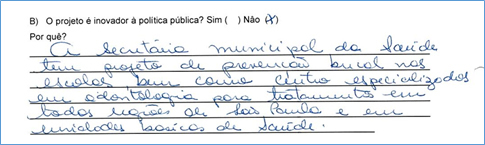 B) O projeto é inovador à política pública? Sim ( ) Não (X)
Por quê?
A secretária municipal da Saúde
tem projeto de prevenção bucal nas
escolas bem como centro especializados
em odontologia para tratamentos em
todas regiões de São Paulo e em
unidades basicas de Saúde.